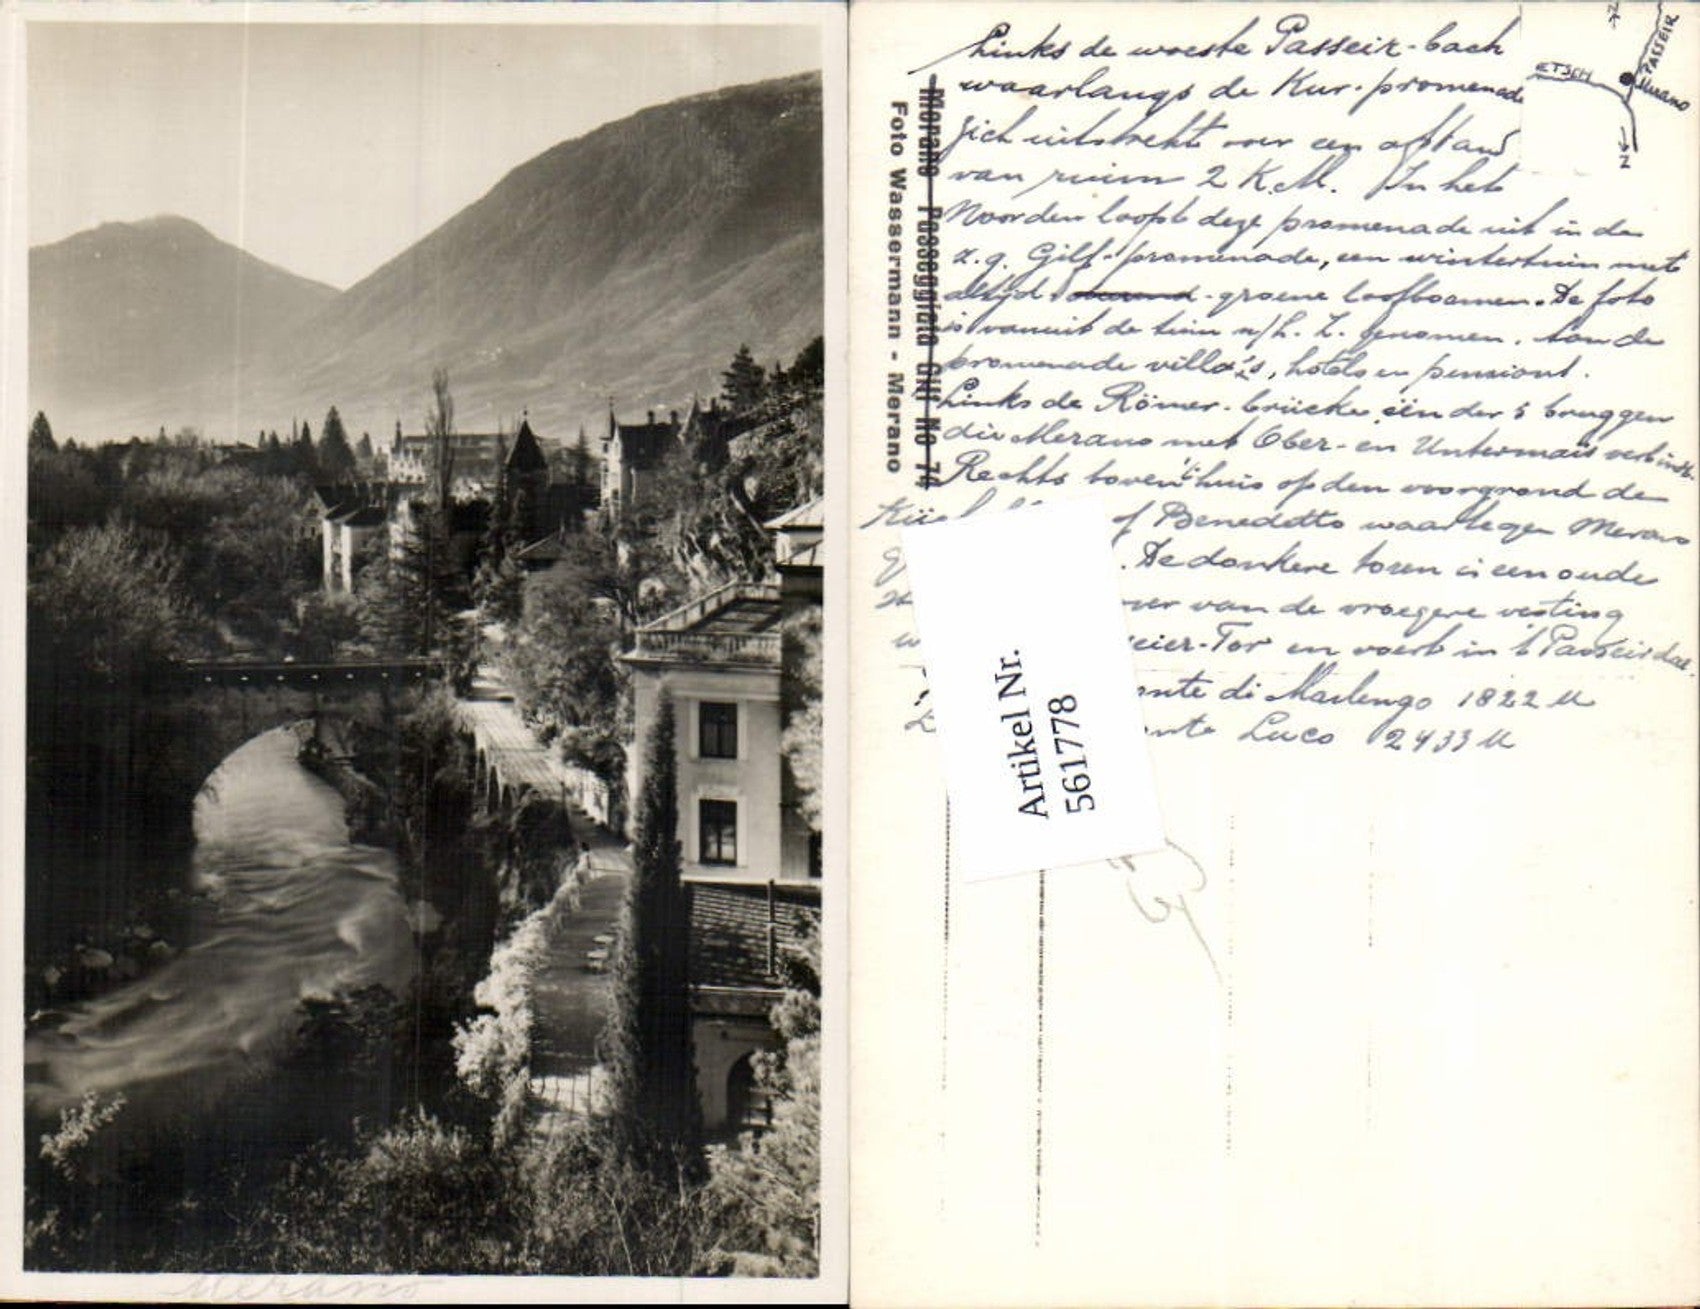 Merano
Links de woeste Passeir-bach
waarlangs de Kur-promenade
zich uitstrekt over een afstand
van ruim 2 K.M. In het
Noorden loopt deze promenade uit in de
z.g. Gilf-promenade, een wintertuin met
altijd groene loofboomen. De foto
is vanuit de tuin v/h. Z. genomen. Aan de
promenade villa's, hotels en pensions.
Links de Römer-brücke één der 5 bruggen
die Merano met Ober- en Untermais verbindt.
Rechts boven 't huis op den voorgrond de
of Benedetto waartegen Merano
. De donkere toren is een oude
van de vroegere vesting
eier-Tor en voert in 't Passeirdal
onte di Marlengo 1822 M
onte Luco 2433 M
ETSCH
PASSEIR
Merano
N
Z
Merano Passeggiata Gilf No 74
Foto Wassermann - Merano
Artikel Nr.
561778